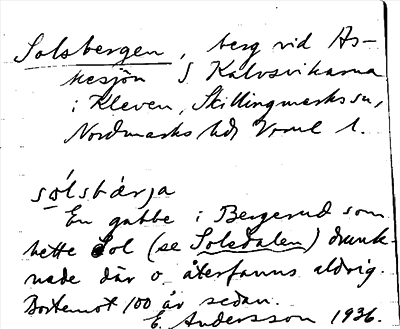 Solsbergen, berg vid As-
kesjön S Kalvsvikarna
i Kleven, Skillingmarks sn,
Nordmarks hd, Vrml l.
sólsbärja
En gubbe i Bergerud som
hette Sol (se Solsdalen) drunk-
nade där o. återfanns aldrig.
Bortemot 100 år sedan.
E. Andersson 1936.